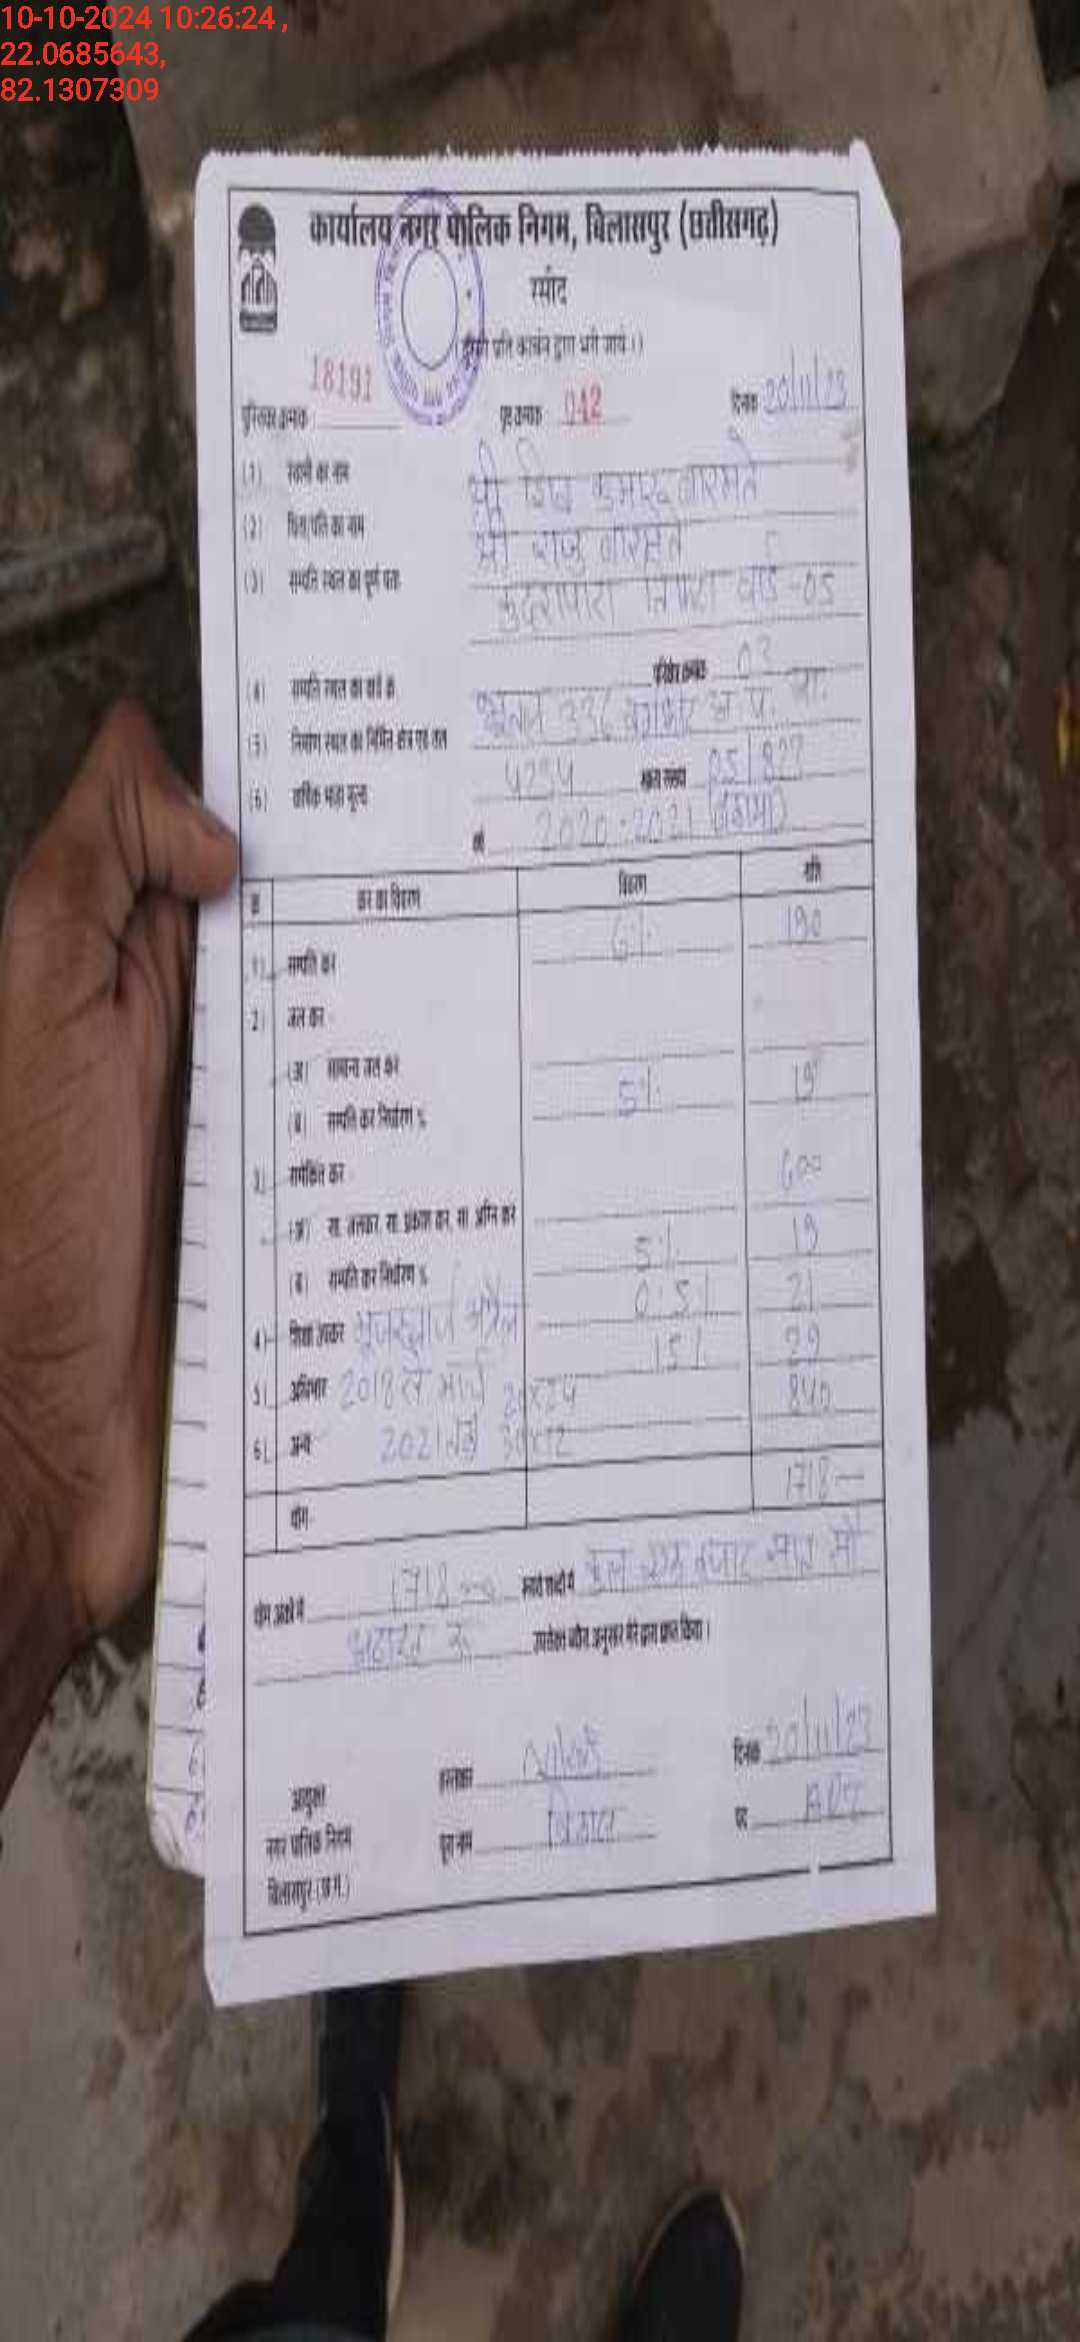 10-10-2024 10:26:24 ,
22.0685643,
82.1307309
कार्यालय नगर पालिक निगम, बिलासपुर (छत्तीसगढ़)
रसीद
प्रति कार्बन द्वारा भरी जाये।)
पुस्तिका क्रमांक 18191 पृष्ठ क्रमांक 042 दिनांक 20/11/23
(1) स्वामी का नाम श्री शिव कुमार बारमते
(2) पिता/पति का नाम श्री राजु बारमते
(3) सम्पत्ति स्थल का पूर्ण पता तिफरा वार्ड -05
(4) सम्पत्ति स्थल का वार्ड क्रं परिक्षेत्र क्रमांक 03
(5) निर्माण स्थल का निर्मित क्षेत्र एवं तल
(6) वार्षिक भाड़ा मूल्य 4254 खाता संख्या 05/822
वर्ष 2020-2021
क्र कर का विवरण विवरण राशि
1) सम्पत्ति कर 6% 190
2) जल कर
(अ) सामान्य जल कर
(ब) सम्पत्ति कर निर्धारण % 5% 19
3) समेकित कर 600
(अ) सा. जलकर, सा. प्रकाश कर, सा. अग्नि कर
(ब) सम्पत्ति कर निर्धारण % 5% 19
4) शिक्षा उपकर 0.5% 21
5) अधिभार 2018 से मार्च 20x24 15% 29
6) अन्य 2021 तक 30x12 840
योग 1718
योग अंकों में 1718 रूपये शब्दों में एक हजार सात सौ
अठारह रू उपरोक्त ब्यौरा अनुसार मेरे द्वारा प्राप्त किया।
आयुक्त हस्ताक्षर दिनांक 20/11/23
नगर पालिक निगम पूरा नाम पद ART
बिलासपुर (छ.ग.)